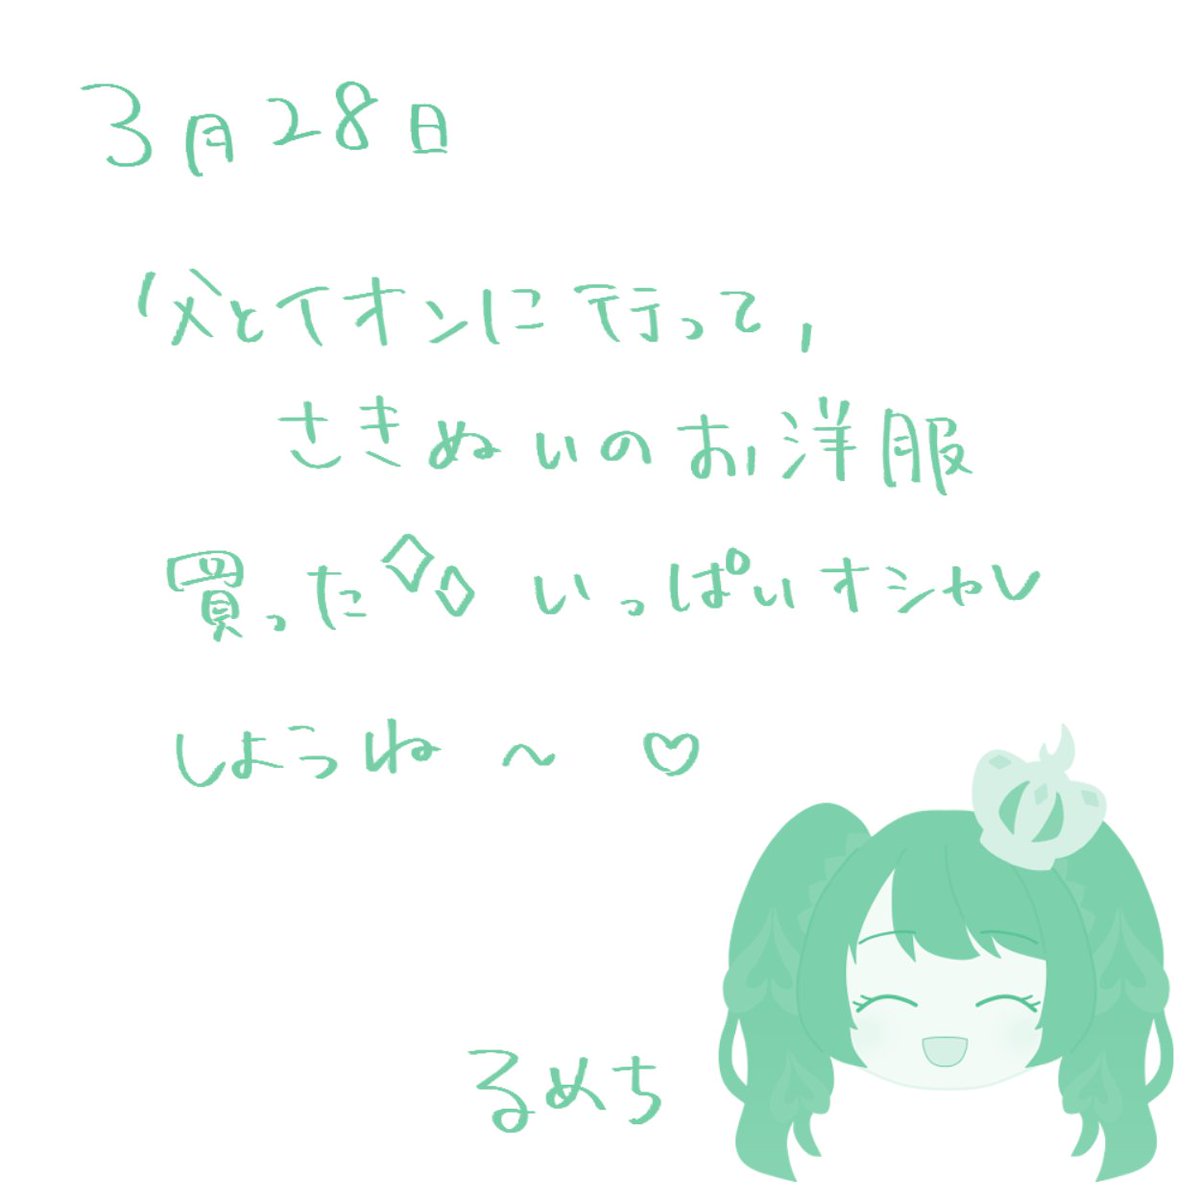 3月28日
父とイオンに行って,
さきぬいのお洋服
買った いっぱいオシャレ
しようね～♡
るめち